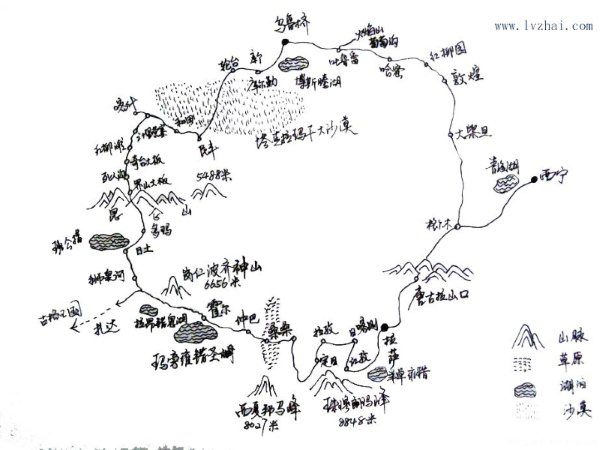 www.lvzhai.com
乌鲁木齐
火焰山
葡萄沟
吐鲁番
哈密
红柳园
敦煌
轮台
库尔勒
博斯腾湖
喀什
和田
民丰
塔克拉玛干大沙漠
大柴旦
青海湖
西宁
奇台大板
界山大板
5488米
昆仑山
多玛
班公错
日土
格尔木
狮泉河
岗仁波齐神山
6656米
唐古拉山口
古格王国
扎达
拉昂错鬼湖
霍尔
仲巴
桑桑
拉孜
日喀则
拉萨
定日
羊卓雍错
玛旁雍错圣湖
西夏邦马峰
8027米
珠穆朗玛峰
8848米
山脉
草原
湖泊
沙漠